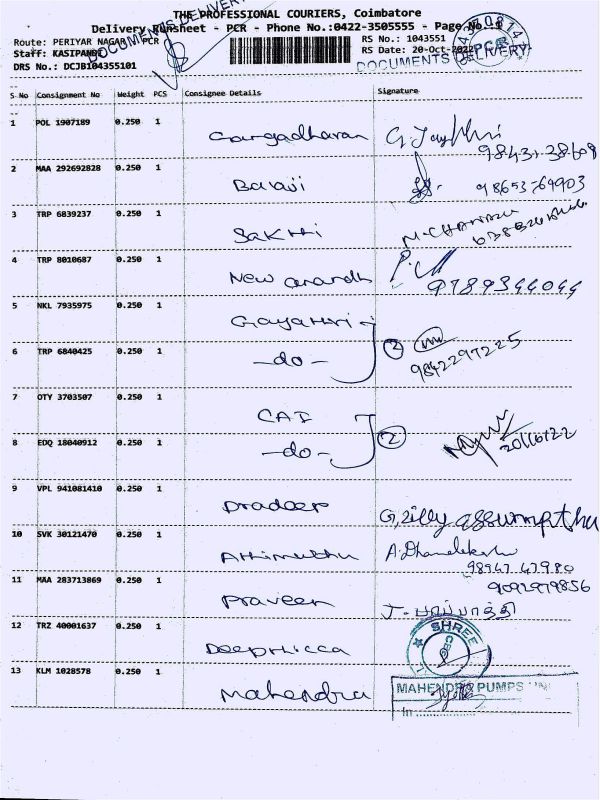 THE PROFESSIONAL COURIERS, Coimbatore
Delivery Runsheet - PCR - Phone No.:0422-3505555 - Page No.:8
Route: PERIYAR NAGAR - PCR
RS No.: 1043551
Staff: KASIPANDI
RS Date: 20-Oct-2022
DRS No.: DCJB104355101
DOCUMENTS DELIVERY
DOCUMENTS DELIVERY
PCR
S No Consignment No Weight PCS Consignee Details Signature
1 POL 1907189 0.250 1 Gangadharan
2 MAA 292692828 0.250 1 Balaji 98653-64903
3 TRP 6839237 0.250 1 Sakthi
4 TRP 8010687 0.250 1 New anandh 9789344044
5 NKL 7935975 0.250 1 Gayathri
6 TRP 6840425 0.250 1 -do- 2 9842297225
7 OTY 3703507 0.250 1 CAI
8 EDQ 18040912 0.250 1 -do- 2 20/10/22
9 VPL 941081410 0.250 1 Pradeep G. zilly assumptha
10 SVK 30121470 0.250 1 Athimuthu A. Dhanalekshmi
98947 47980
11 MAA 283713869 0.250 1 Praveen 9092979856
J- பாப்பாத்தி
12 TRZ 40001637 0.250 1 Deephicca
SHREE
13 KLM 1028578 0.250 1 Mahendra
MAHENDRA PUMPS